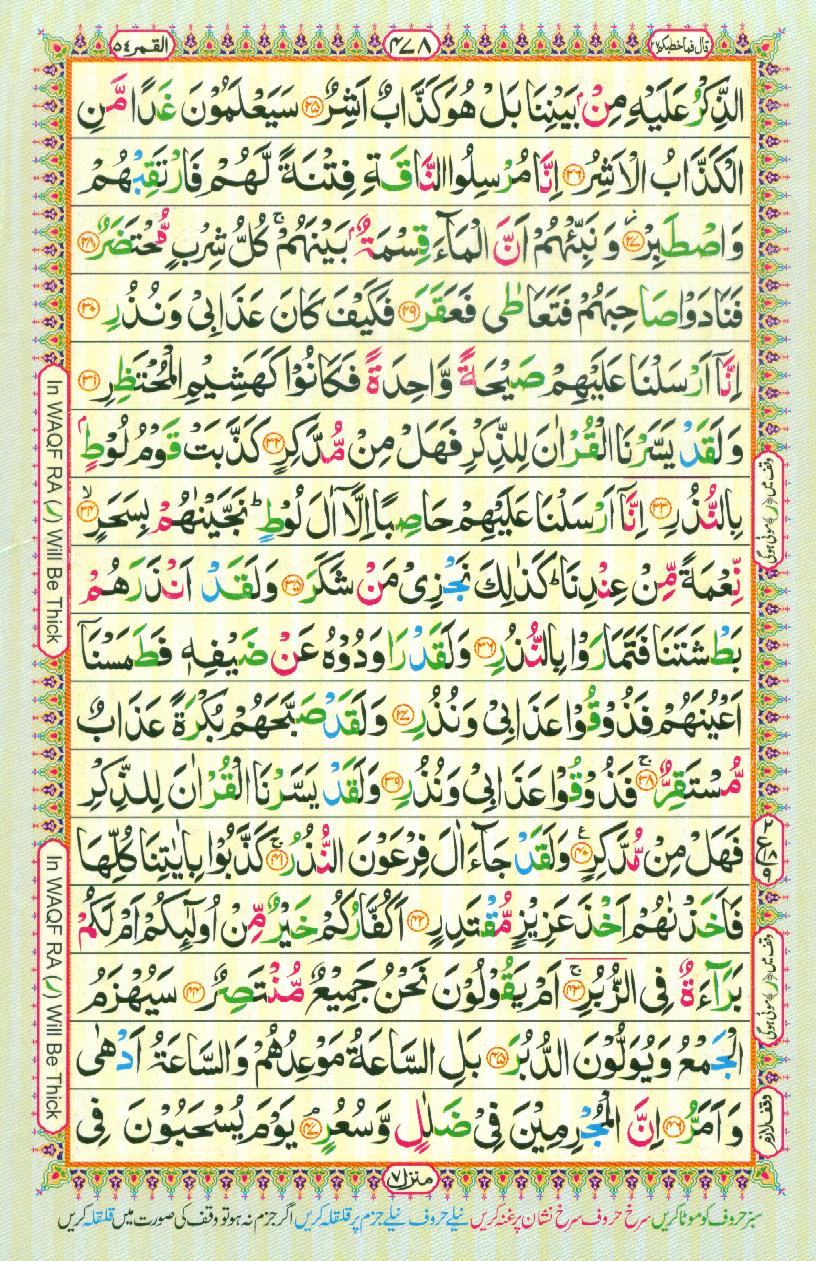 قال فما خطبكم ٢٧
٤٧٨
القمر ٥٤
الذِّكْرُ عَلَيْهِ مِنْۢ بَيْنِنَا بَلْ هُوَ كَذَّابٌ اَشِرٌ ﴿۲۵﴾ سَيَعْلَمُوْنَ غَدًا مَّنِ
الْكَذَّابُ الْاَشِرُ ﴿۲۶﴾ اِنَّا مُرْسِلُوا النَّاقَةِ فِتْنَةً لَّهُمْ فَارْتَقِبْهُمْ
وَاصْطَبِرْ ﴿۲۷﴾ وَنَبِّئْهُمْ اَنَّ الْمَآءَ قِسْمَةٌۢ بَيْنَهُمْ ۚ كُلُّ شِرْبٍ مُّحْتَضَرٌ ﴿۲۸﴾
فَنَادَوْا صَاحِبَهُمْ فَتَعَاطٰى فَعَقَرَ ﴿۲۹﴾ فَكَيْفَ كَانَ عَذَابِىْ وَنُذُرِ ﴿۳۰﴾
اِنَّاۤ اَرْسَلْنَا عَلَيْهِمْ صَيْحَةً وَّاحِدَةً فَكَانُوْا كَهَشِيْمِ الْمُحْتَظِرِ ﴿۳۱﴾
وَلَقَدْ يَسَّرْنَا الْقُرْاٰنَ لِلذِّكْرِ فَهَلْ مِنْ مُّدَّكِرٍ ﴿۳۲﴾ كَذَّبَتْ قَوْمُ لُوْطٍۭ
بِالنُّذُرِ ﴿۳۳﴾ اِنَّاۤ اَرْسَلْنَا عَلَيْهِمْ حَاصِبًا اِلَّاۤ اٰلَ لُوْطٍ ؕ نَجَّيْنٰهُمْ بِسَحَرٍ ﴿۳۴﴾ۙ
نِّعْمَةً مِّنْ عِنْدِنَا ؕ كَذٰلِكَ نَجْزِىْ مَنْ شَكَرَ ﴿۳۵﴾ وَلَقَدْ اَنْذَرَهُمْ
بَطْشَتَنَا فَتَمَارَوْا بِالنُّذُرِ ﴿۳۶﴾ وَلَقَدْ رَاوَدُوْهُ عَنْ ضَيْفِهٖ فَطَمَسْنَاۤ
اَعْيُنَهُمْ فَذُوْقُوْا عَذَابِىْ وَنُذُرِ ﴿۳۷﴾ وَلَقَدْ صَبَّحَهُمْ بُكْرَةً عَذَابٌ
مُّسْتَقِرٌّ ﴿۳۸﴾ۚ فَذُوْقُوْا عَذَابِىْ وَنُذُرِ ﴿۳۹﴾ وَلَقَدْ يَسَّرْنَا الْقُرْاٰنَ لِلذِّكْرِ
فَهَلْ مِنْ مُّدَّكِرٍ ﴿۴۰﴾ وَلَقَدْ جَآءَ اٰلَ فِرْعَوْنَ النُّذُرُ ﴿۴۱﴾ۚ كَذَّبُوْا بِاٰيٰتِنَا كُلِّهَا
فَاَخَذْنٰهُمْ اَخْذَ عَزِيْزٍ مُّقْتَدِرٍ ﴿۴۲﴾ اَكُفَّارُكُمْ خَيْرٌ مِّنْ اُولٰٓئِكُمْ اَمْ لَكُمْ
بَرَآءَةٌ فِى الزُّبُرِ ﴿۴۳﴾ۚ اَمْ يَقُوْلُوْنَ نَحْنُ جَمِيْعٌ مُّنْتَصِرٌ ﴿۴۴﴾ سَيُهْزَمُ
الْجَمْعُ وَيُوَلُّوْنَ الدُّبُرَ ﴿۴۵﴾ بَلِ السَّاعَةُ مَوْعِدُهُمْ وَالسَّاعَةُ اَدْهٰى
وَاَمَرُّ ﴿۴۶﴾ اِنَّ الْمُجْرِمِيْنَ فِىْ ضَلٰلٍ وَّسُعُرٍ ﴿۴۷﴾ۘ يَوْمَ يُسْحَبُوْنَ فِى
In WAQF RA (ر) Will Be Thick
In WAQF RA (ر) Will Be Thick
وقف میں (ر) موٹی ہوگی
وقف میں (ر) موٹی ہوگی
وقف لازم
منزل ٧
سبز حروف کو موٹا کریں سرخ حروف سرخ نشان پر غنہ کریں نیلے حروف نیلے جزم پر قلقلہ کریں اگر جزم نہ ہو تو وقف کی صورت میں قلقلہ کریں